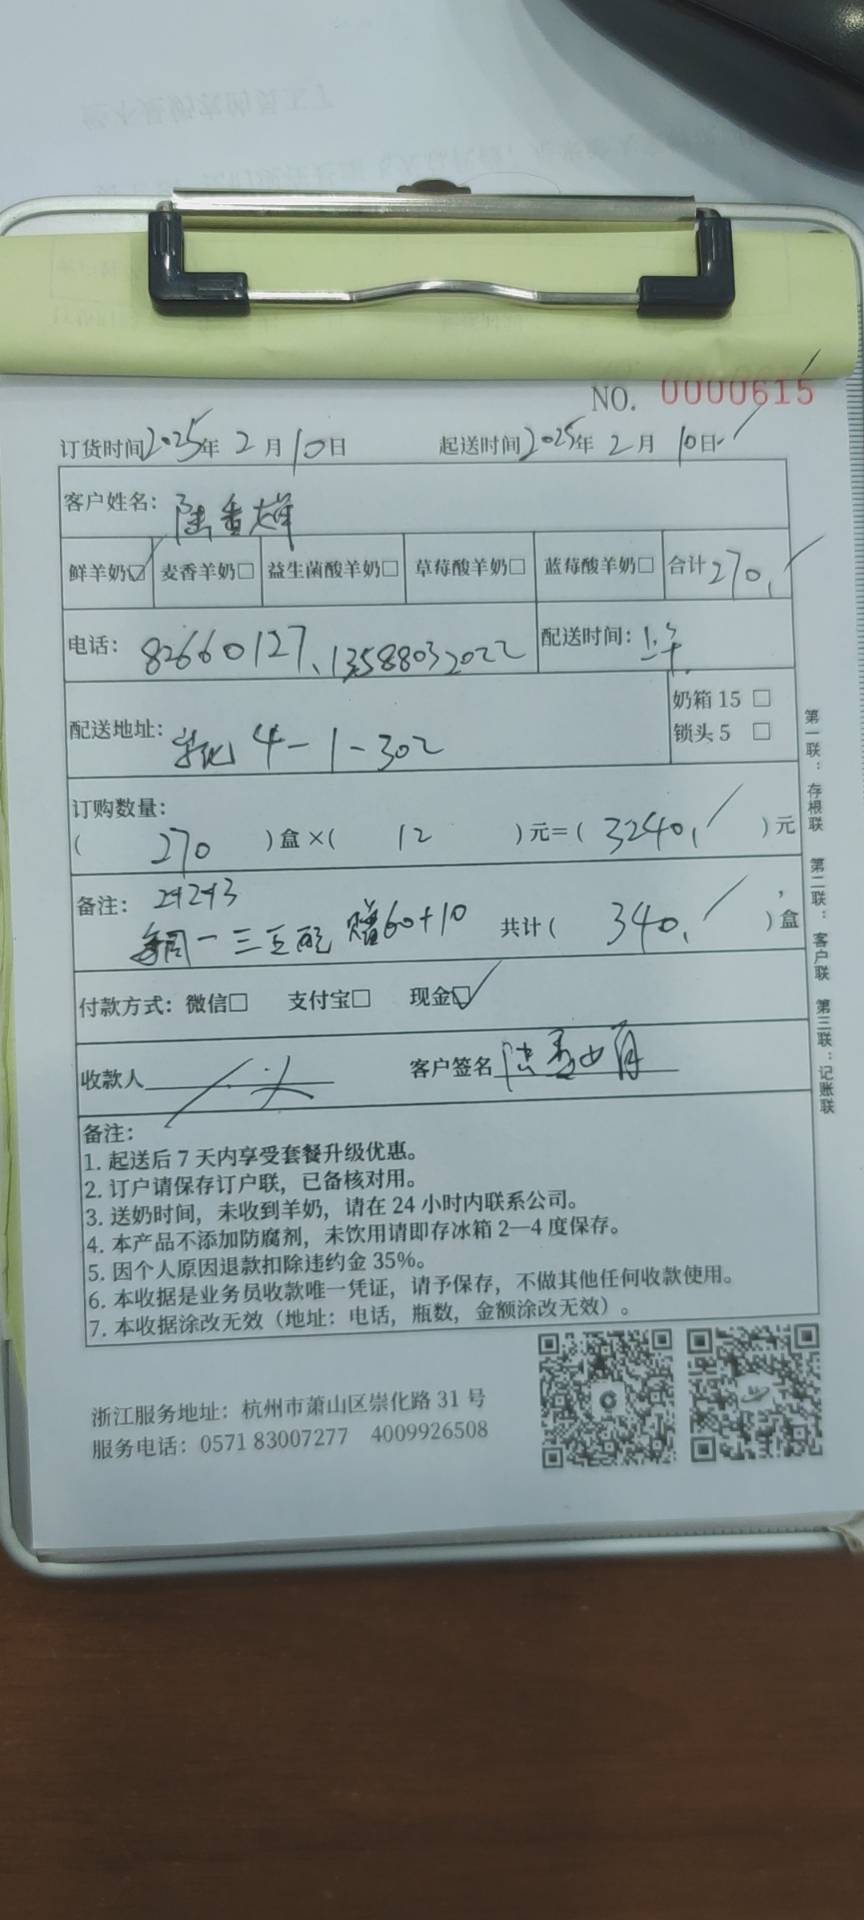 NO. 0000615
订货时间2025年 2月10日 起送时间2025年 2月 10日
客户姓名：陆香娣
鲜羊奶☑ 麦香羊奶□ 益生菌酸羊奶□ 草莓酸羊奶□ 蓝莓酸羊奶□ 合计270.
电话：82660127、13588032022 配送时间：上午
配送地址：4-1-302 奶箱15 □
锁头5 □
订购数量：
（ 270 ）盒×（ 12 ）元=（ 3240. ）元
备注：2+2+3
每周一三五配 赠60+10 共计（ 340. ）盒
付款方式：微信□ 支付宝□ 现金☑
收款人 客户签名
备注：
1. 起送后 7 天内享受套餐升级优惠。
2. 订户请保存订户联，已备核对用。
3. 送奶时间，未收到羊奶，请在 24 小时内联系公司。
4. 本产品不添加防腐剂，未饮用请即存冰箱 2—4 度保存。
5. 因个人原因退款扣除违约金 35%。
6. 本收据是业务员收款唯一凭证，请予保存，不做其他任何收款使用。
7. 本收据涂改无效（地址：电话，瓶数，金额涂改无效）。
第一联：存根联 第二联：客户联 第三联：记账联
浙江服务地址：杭州市萧山区崇化路 31 号
服务电话：0571 83007277 4009926508